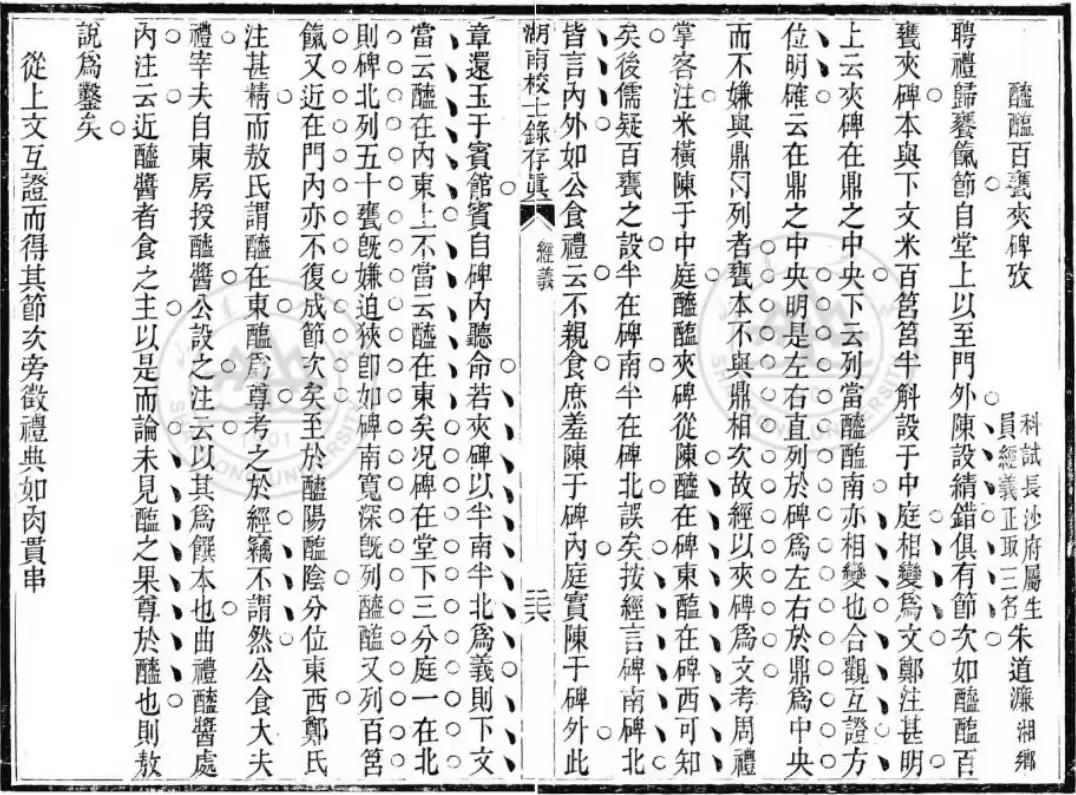 醯醢百甕夾碑攷
科試長沙府屬生
員經義正取三名
朱道濂湘鄉
聘禮歸饔餼節自堂上以至門外陳設綪錯俱有節次如醯醢百
甕夾碑本與下文米百筥筥半斛設于中庭相變爲文鄭注甚明
上云夾碑在鼎之中央下云列當醯醢南亦相變也合觀互證方
位明確云在鼎之中央明是左右直列於碑爲左右於鼎爲中央
而不嫌與鼎同列者甕本不與鼎相次故經以夾碑爲文考周禮
掌客注米橫陳于中庭醯醢夾碑從陳醯在碑東醢在碑西可知
矣後儒疑百甕之設半在碑南半在碑北誤矣按經言碑南碑北
皆言內外如公食禮云不親食庶羞陳于碑內庭實陳于碑外此
湖南校士錄存眞
經義
三六
章還玉于賓館賓自碑內聽命若夾碑以半南半北爲義則下文
當云醯在內東上不當云醯在東矣况碑在堂下三分庭一在北
則碑北列五十甕旣嫌迫狹卽如碑南寬深旣列醯醢又列百筥
餼又近在門內亦不復成節次矣至於醯陽醢陰分位東西鄭氏
注甚精而敖氏謂醯在東醢爲尊考之於經竊不謂然公食大夫
禮宰夫自東房授醯醬公設之注云以其爲饌本也曲禮醯醬處
內注云近醯醬者食之主以是而論未見醢之果尊於醯也則敖
說爲鑿矣
從上文互證而得其節次旁徵禮典如肉貫串
SHANDONG UNIVERSITY
1901